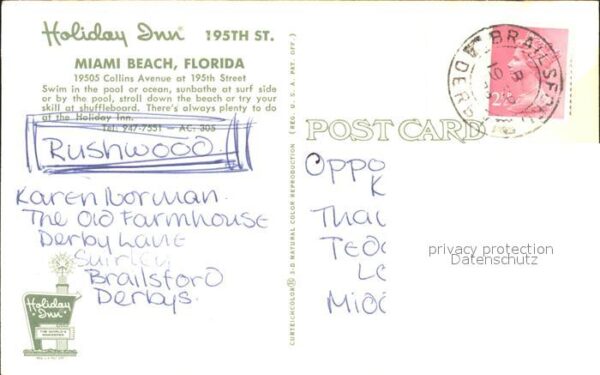 Holiday Inn® 195TH ST.
MIAMI BEACH, FLORIDA
19505 Collins Avenue at 195th Street
Swim in the pool or ocean, sunbathe at surf side
or by the pool, stroll down the beach or try your
skill at shuffleboard. There's always plenty to do
at the Holiday Inn.
Tel: 947-7551 — AC: 305
RUSHWOOD
Karen Norman.
The Old Farmhouse
Derby Lane
Shirley
Brailsford
Derbys.
Holiday Inn
CURTEICHCOLOR® 3-D NATURAL COLOR REPRODUCTION (REG. U. S. A. PAT. OFF.)
POST CARD
BRAILSFORD
2½
Oppo
K
Tha
Tedd
Le
Midd
privacy protection
Datenschutz